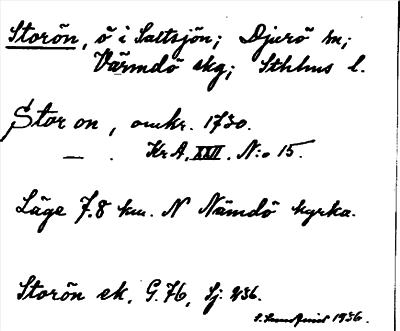 Storön, ö i Saltsjön; Djurö sn;
Värmdö skg; Sthlms l.
Stor on, omkr. 1730.
— . Kr A, XXVI. N:o 15.
Läge 7.8 km. N Nämdö kyrka.
Storön ek. G. 76, Sj: 236.
1936.